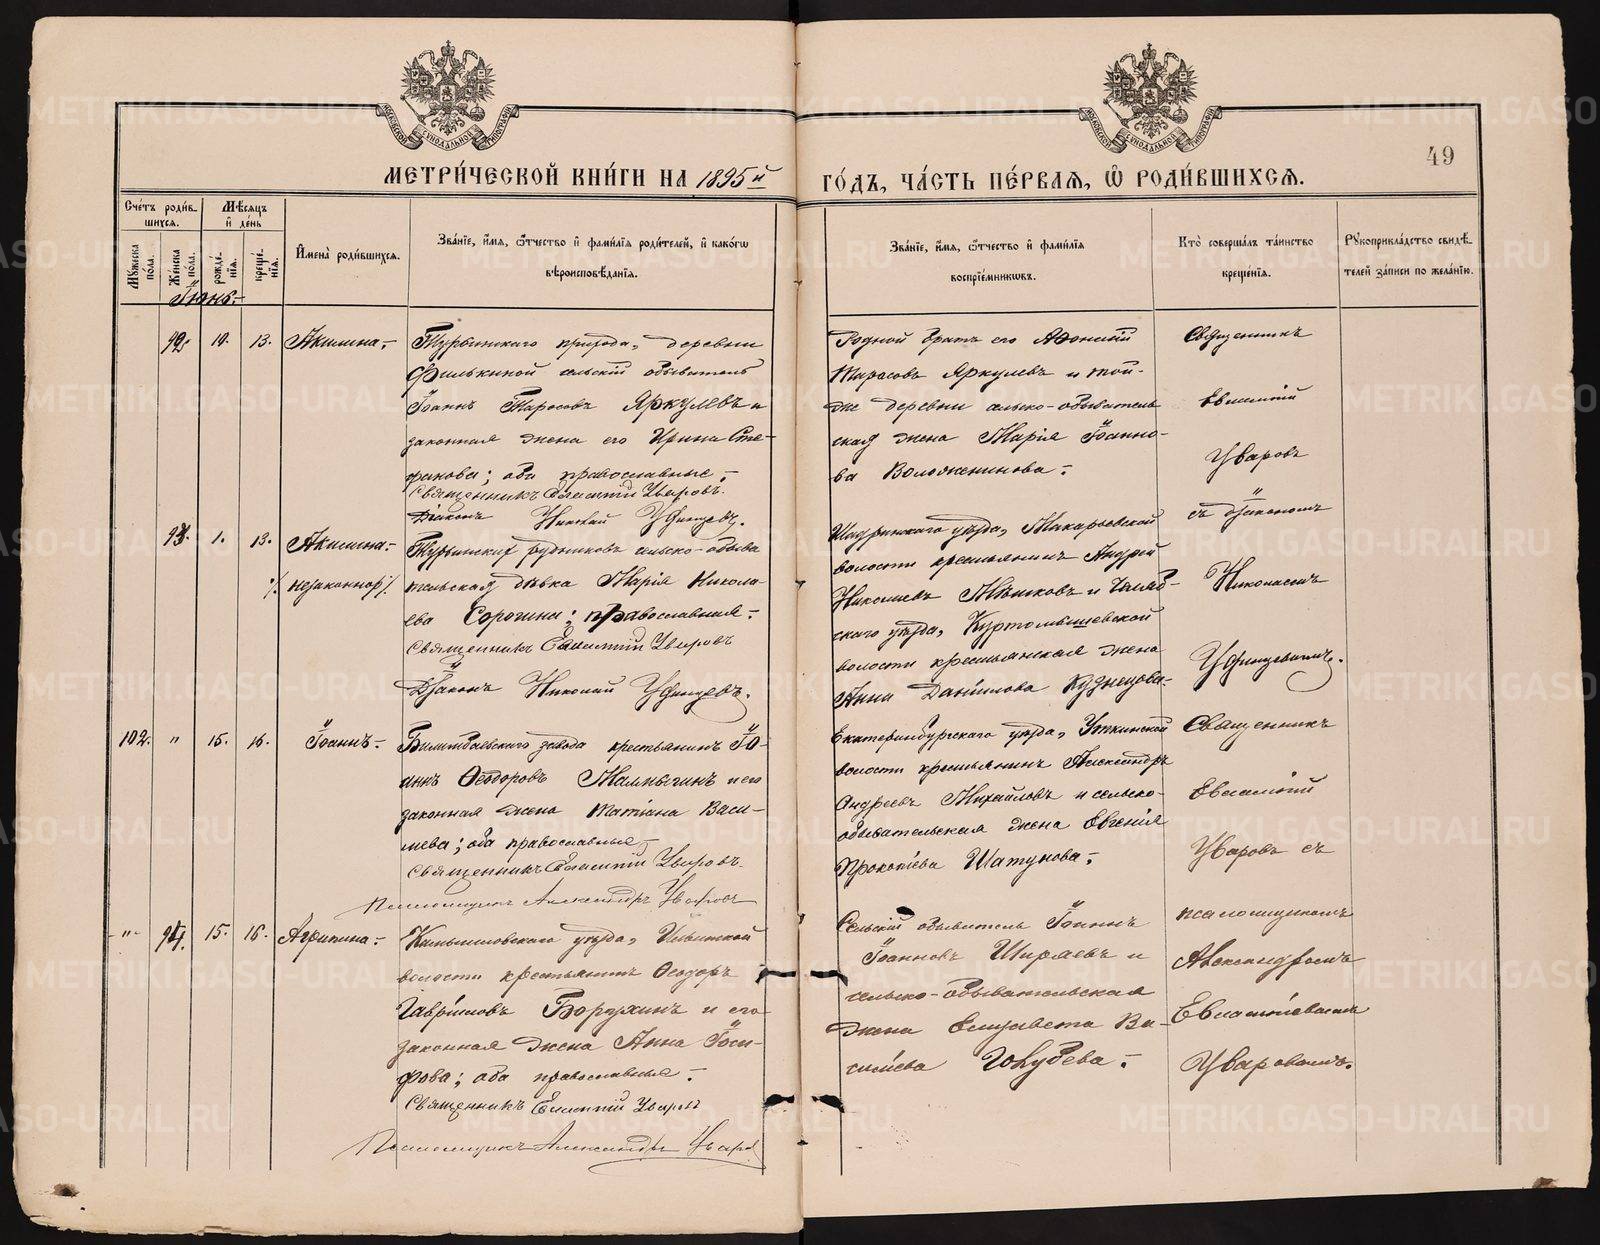 МЕТРИ́ЧЕСКОЙ КНИ́ГИ НА 1895й
ГО́ДЪ, ЧА́СТЬ ПЕ́РВАЯ, Ѿ РОДИ́ВШИХСЯ.
49
Сче́тъ роди́в-
шихся.
Мѣ́сяцъ
и҆ де́нь
Му́жеска
по́ла.
Же́нска
по́ла.
рожде́-
нія.
креще́-
нія.
И҆мена̀ роди́вшихся.
Зва́ніе, и҆́мя, ѻ҆́тчество и҆ фами́лія роди́телей, и҆ како́гѡ
вѣроисповѣ́данія.
Зва́ніе, и҆́мя, ѻ҆́тчество и҆ фами́лія
воспріе́мникѡвъ.
Кто̀ соверша́лъ та́инство
креще́нія.
Рукоприкла́дство свидѣ́-
телей за́писи по жела́нію.
Іюнь.-
92. 10. 13. Акилина.-
Турьинскаго прихода, деревни
Филькиной сельскій обыватель
Іоаннъ Тарасовъ Яркуевъ и
законная жена его Ирина Сте-
фанова; оба православные.-
Священникъ Евлампій Уваровъ.
Діаконъ Николай Удинцевъ.
Родной братъ его Афонасій
Тарасовъ Яркуевъ и той-
же деревни сельско-обыватель
ская жена Марія Іоанно-
ва Воложенинова.-
Священникъ
Евлампій
Уваровъ
съ діакономъ
Николаемъ
Удинцевымъ.
93. 1. 13. Акилина.-
/. незаконнор /.
Турьинских рудниковъ сельско-обыва
тельская дѣвка Марія Никола-
ева Сорогина; православная.-
Священникъ Евлампій Уваровъ
Діаконъ Николай Удинцевъ.
Шадринскаго уѣзда, Макарьевской
волости крестьянинъ Андрей
Николаевъ Мѣшковъ и Челяб-
скаго уѣзда, Куртамышевской
волости крестьянская жена
Анна Даніилова Кузнецова.-
102. " 15. 16. Іоаннъ.-
Билимбаевскаго завода крестьянинъ Іо-
аннъ Ѳеодоровъ Малмыгинъ и его
законная жена Татіана Васи-
льева; оба православные.-
Священникъ Евлампій Уваровъ.
Псаломщикъ Александръ Уваровъ
Екатеринбургскаго уѣзда, Уткинской
волости крестьянинъ Александръ
Андреевъ Михайловъ и сельско-
обывательская жена Евгенія
Прокопіева Шатунова.-
Священникъ
Евлампій
Уваровъ съ
псаломщикомъ
Александромъ
Евлампіевымъ
Уваровымъ.
-"- 94. 15. 16. Агрипина.-
Камышловскаго уѣзда,
волости крестьянинъ Ѳеодоръ
Гавріиловъ и его
законная жена Анна Іоси-
фова; оба православные.-
Священникъ Евлампій Уваровъ
Псаломщикъ Александръ Уваров
Сельскій обыватель Іоаннъ
Іоанновъ Ширяевъ и
сельско-обывательская
жена Елизавета Ва-
силіева Голубева.-